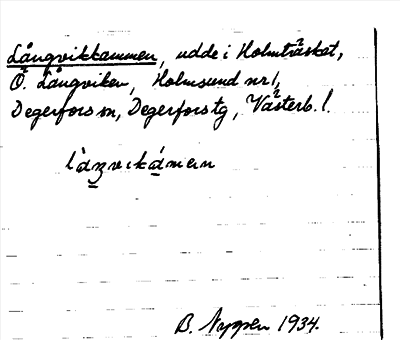 Långvikkammen, udde i Holmträsket,
Ö. Långviken, Holmsund nr 1,
Degerfors sn, Degerfors tg, Västerb. l.
B. Nyppen 1934.